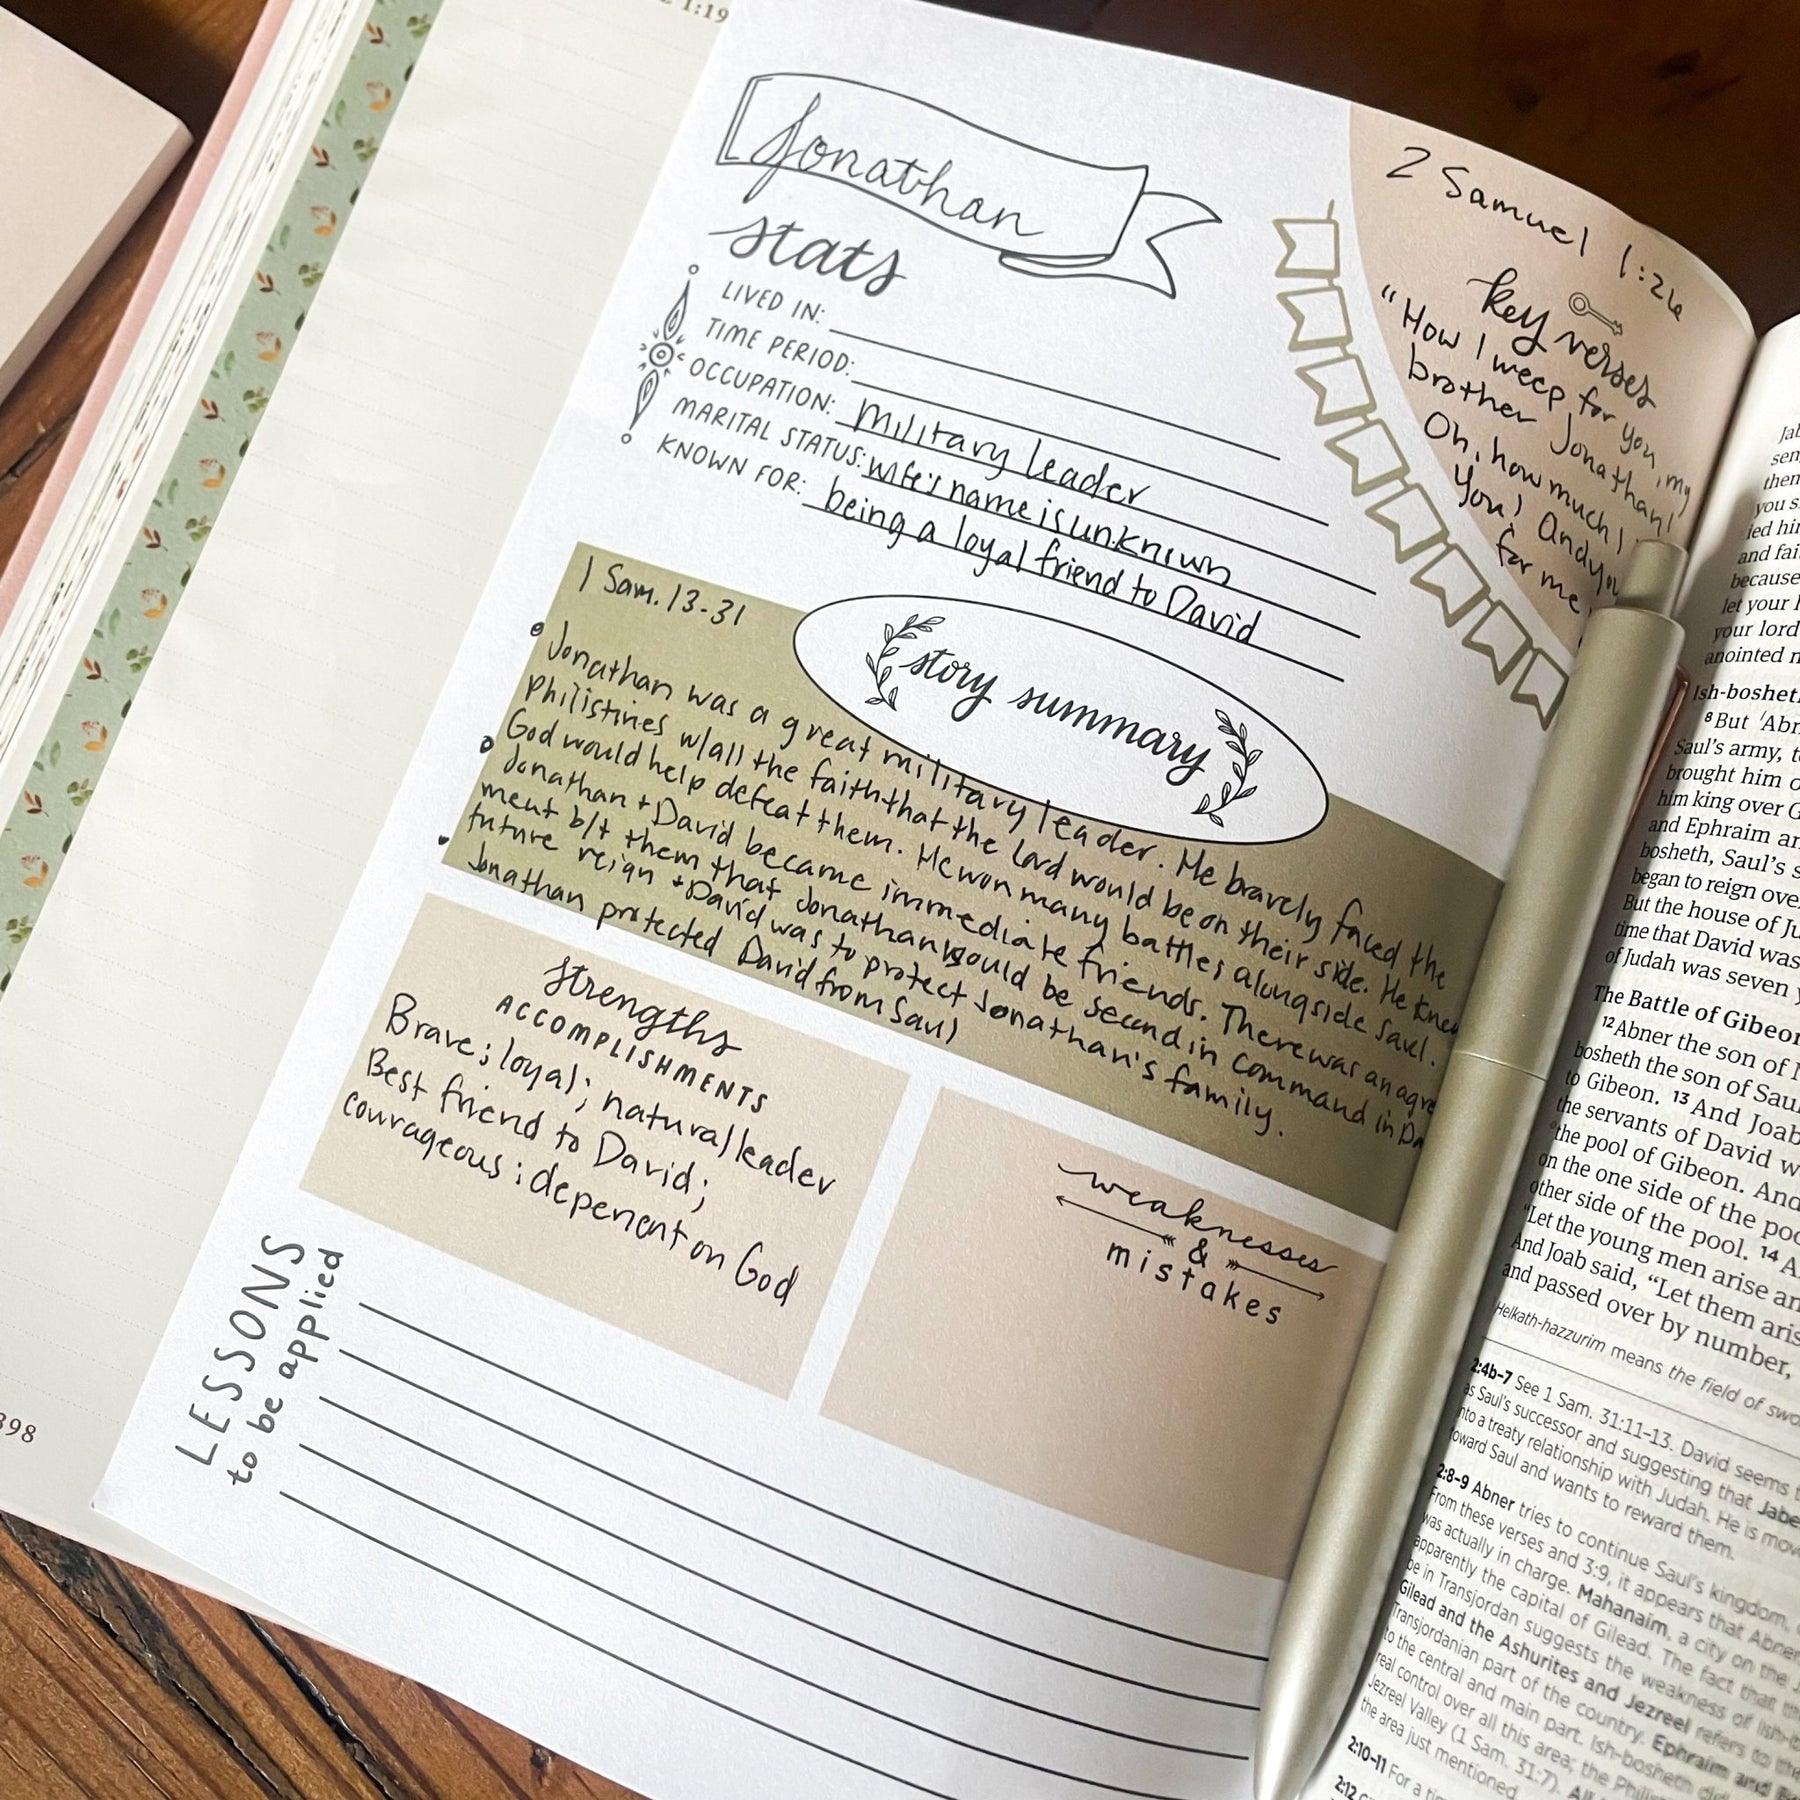 1:19
Jonathan
stats
LIVED IN:
TIME PERIOD:
OCCUPATION: Military Leader
MARITAL STATUS: wife's name is unknown
KNOWN FOR: being a loyal friend to David
2 Samuel 1:26
key verses
"How I weep for you, my
brother Jonathan!
Oh, how much I
You! And you
for me
1 Sam. 13-31
story summary
Jonathan was a great military leader. He bravely faced the
Philistines w/all the faith that the Lord would be on their side. He knew
God would help defeat them. He won many battles alongside Saul.
Jonathan + David became immediate friends. There was an agre
ment b/t them that Jonathan would be second in command in Da
future reign + David was to protect Jonathan's family.
Jonathan protected David from Saul
strengths
ACCOMPLISHMENTS
Brave; loyal; natural leader
Best friend to David;
courageous; depenent on God
weaknesses
&
mistakes
LESSONS
to be applied
398
Jab
sen
then
you s
ied hi
and fai
because
let your h
your lord
anointed
Ish-boshet
8 But Abn
Saul's army, t
brought him o
him king over G
and Ephraim an
bosheth, Saul's s
began to reign ove
But the house of Ju
time that David was
of Judah was seven y
The Battle of Gibeon
12 Abner the son of
bosheth the son of Saul
to Gibeon. 13 And Joab
the servants of David w
the pool of Gibeon. And
on the one side of the poo
other side of the pool. 14 A
"Let the young men arise an
And Joab said, "Let them aris
and passed over by number,
Helkath-hazzurim means the field of swo
2:4b-7 See 1 Sam. 31:11-13. David seems t
as Saul's successor and suggesting that Jabe
into a treaty relationship with Judah. He is mov
toward Saul and wants to reward them.
2:8-9 Abner tries to continue Saul's kingdom,
From these verses and 3:9, it appears that Abner
was actually in charge. Mahanaim, a city on the J
apparently the capital of Gilead. The fact that th
be in Transjordan suggests the weakness of Ish-b
Gilead and the Ashurites and Jezreel refers to the
Transjordanian part of the country. Ephraim and
to the central and main part. Ish-bosheth did
real control over all this area; the Phili
Jezreel Valley (1 Sam. 31:7). All
the area just mentioned
2:10-11 For a
2:12